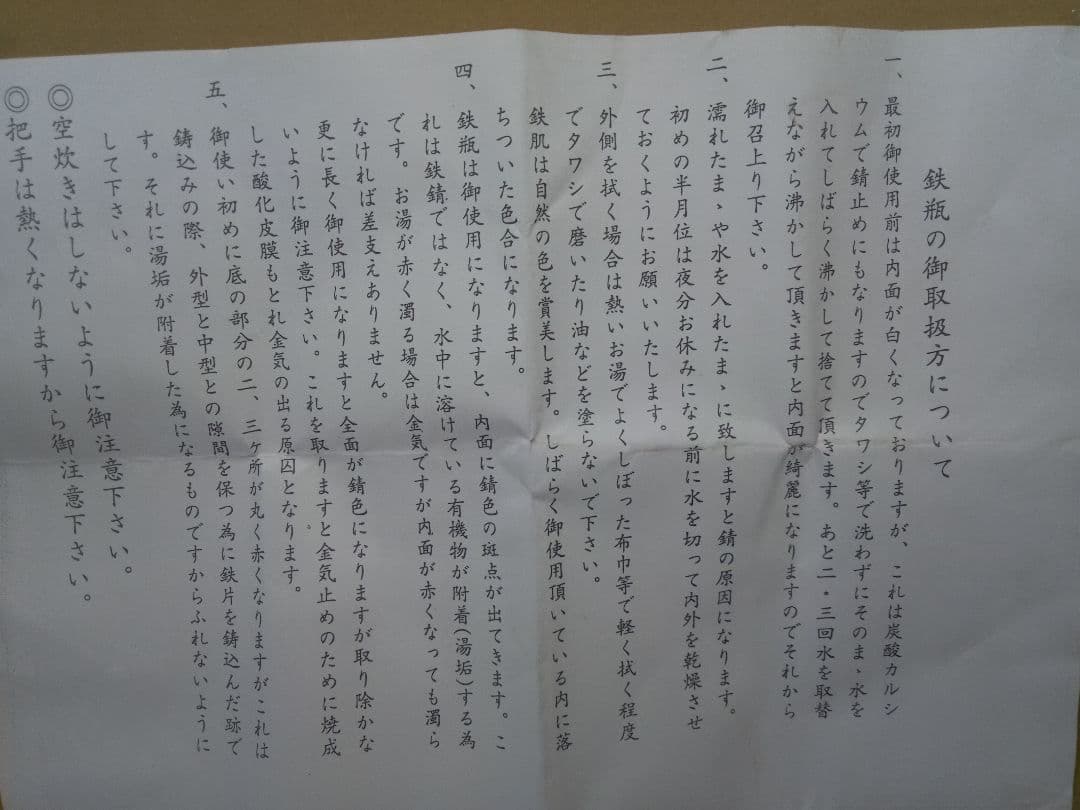 鉄瓶の御取扱方について
一、最初御使用前は内面が白くなっておりますが、これは炭酸カルシ
ウムで錆止めにもなりますのでタワシ等で洗わずにそのまゝ水を
入れてしばらく沸かして捨てて頂きます。あと二・三回水を取替
えながら沸かして頂きますと内面が綺麗になりますのでそれから
御召上り下さい。
二、濡れたまゝや水を入れたまゝに致しますと錆の原因になります。
初めの半月位は夜分お休みになる前に水を切って内外を乾燥させ
ておくようにお願いいたします。
三、外側を拭く場合は熱いお湯でよくしぼった布巾等で軽く拭く程度
でタワシで磨いたり油などを塗らないで下さい。
鉄肌は自然の色を賞美します。しばらく御使用頂いている内に落
ちついた色合になります。
四、鉄瓶は御使用になりますと、内面に錆色の斑点が出てきます。こ
れは鉄錆ではなく、水中に溶けている有機物が附着(湯垢)する為
です。お湯が赤く濁る場合は金気ですが内面が赤くなっても濁ら
なければ差支えありません。
更に長く御使用になりますと全面が錆色になりますが取り除かな
いように御注意下さい。これを取りますと金気止めのために焼成
した酸化皮膜もとれ金気の出る原因となります。
五、御使い初めに底の部分の二、三ヶ所が丸く赤くなりますがこれは
鋳込みの際、外型と中型との隙間を保つ為に鉄片を鋳込んだ跡で
す。それに湯垢が附着した為になるものですからふれないように
して下さい。
◎空炊きはしないように御注意下さい。
◎把手は熱くなりますから御注意下さい。